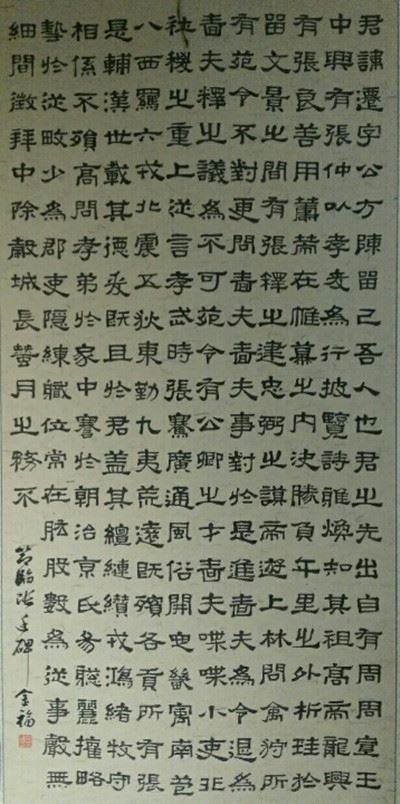 君諱遷字公方陳留己吾人也君之先出自有周周宣王
中興有張仲以孝友為行披覽詩雅煥知其祖高帝龍興
有張良善用籌策在帷幕之內決勝負千里之外析珪於
留文景之間有張釋之建忠弼之謨帝遊上林問禽狩所
有苑令不對更問嗇夫嗇夫事對於是進嗇夫為令退為
嗇夫釋之議為不可苑令有公卿之才嗇夫喋喋小吏非
社稷之重上從言孝武時張騫廣通風俗開定畿寓南苞
八西羈六戎北震五狄東勤九夷荒遠既殯各貢所有張
是輔漢世載其德爰既且於君蓋其繵縺纘戎鴻緒牧守
相係不殞高問孝弟於家中謇於朝治京氏易聰麗權略
藝於從畋少為郡吏隱練職位常在肱股數為從事聲無
細聞徵拜中除穀城長蠶月之務不
節臨張遷碑 金福